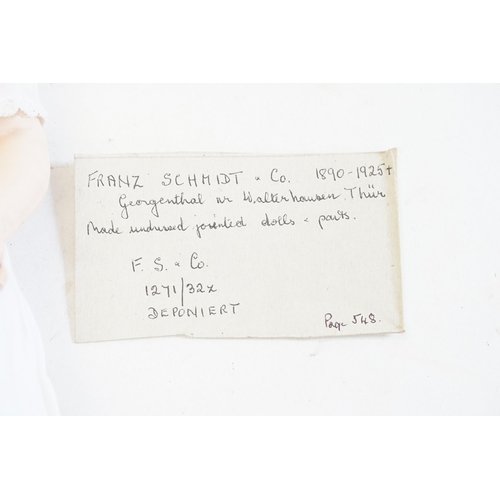 FRANZ SCHMIDT & Co. 1890-1925+
Georgenthal nr Walterhausen Thür
Made undressed jointed dolls & parts.
F. S. & Co.
1271/32z
DEPONIERT
Page 548.